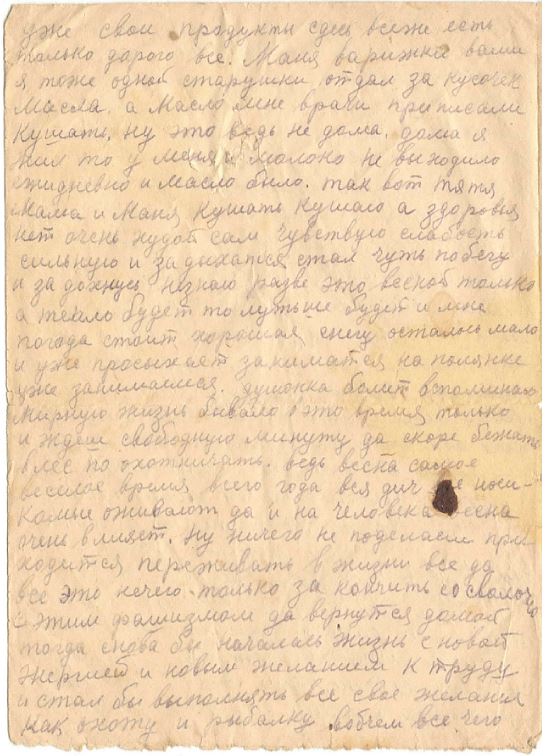 уже свои продукты сдесь всеже есть
только дорого все. Маня варижки вами
я тоже одной старушки отдал за кусочек
масла. а масло мне врачи приписали
кушать, ну это ведь не дома. дома я
жил то у меня и молоко не выходило
ежидневно и масло было. так вот тятя
мама и Маня кушать кушаю а здоровья
нет очень худой сам чувствую слабость
сильную и задыхатся стал чуть побегу
и задохнусь незнаю разве это весной только
а тепло будет то лутьше будет и мне
погода стоит хорошая снегу осталось мало
и уже просыхает заниматся на полянке
уже занимаемся. душонка болит вспоминаю
мирную жизнь бывало в это время только
и ждеш свободную минуту да скоре бежать
в лес по охотничать. ведь весна самое
веселое время всего года вся дич
комые оживают да и на человека весна
очень влияет. ну ничего не поделаеш при
ходится переживать в жизни все да
все это нечего только за кончить со сволочью
с этим фашизмом да вернутся домой
тогда снова бы началась жизнь с новой
энергией и новым желанием к труду
и стал бы выполнять все свое желания
как охоту и рыбалку вобчем все чего